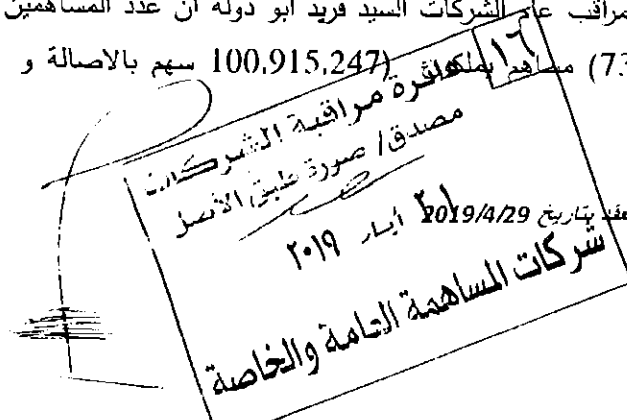 مراقب عام الشركات السيد فريد ابو دولة ان عدد المساهمين
73) مساهم يملكون (100,915,247 سهم بالاصالة و
١٦
دائرة مراقبة الشركات
مصدق / صورة طبق الأصل
٢١ أيار ٢٠١٩
بتاريخ 2019/4/29
شركات المساهمة العامة والخاصة